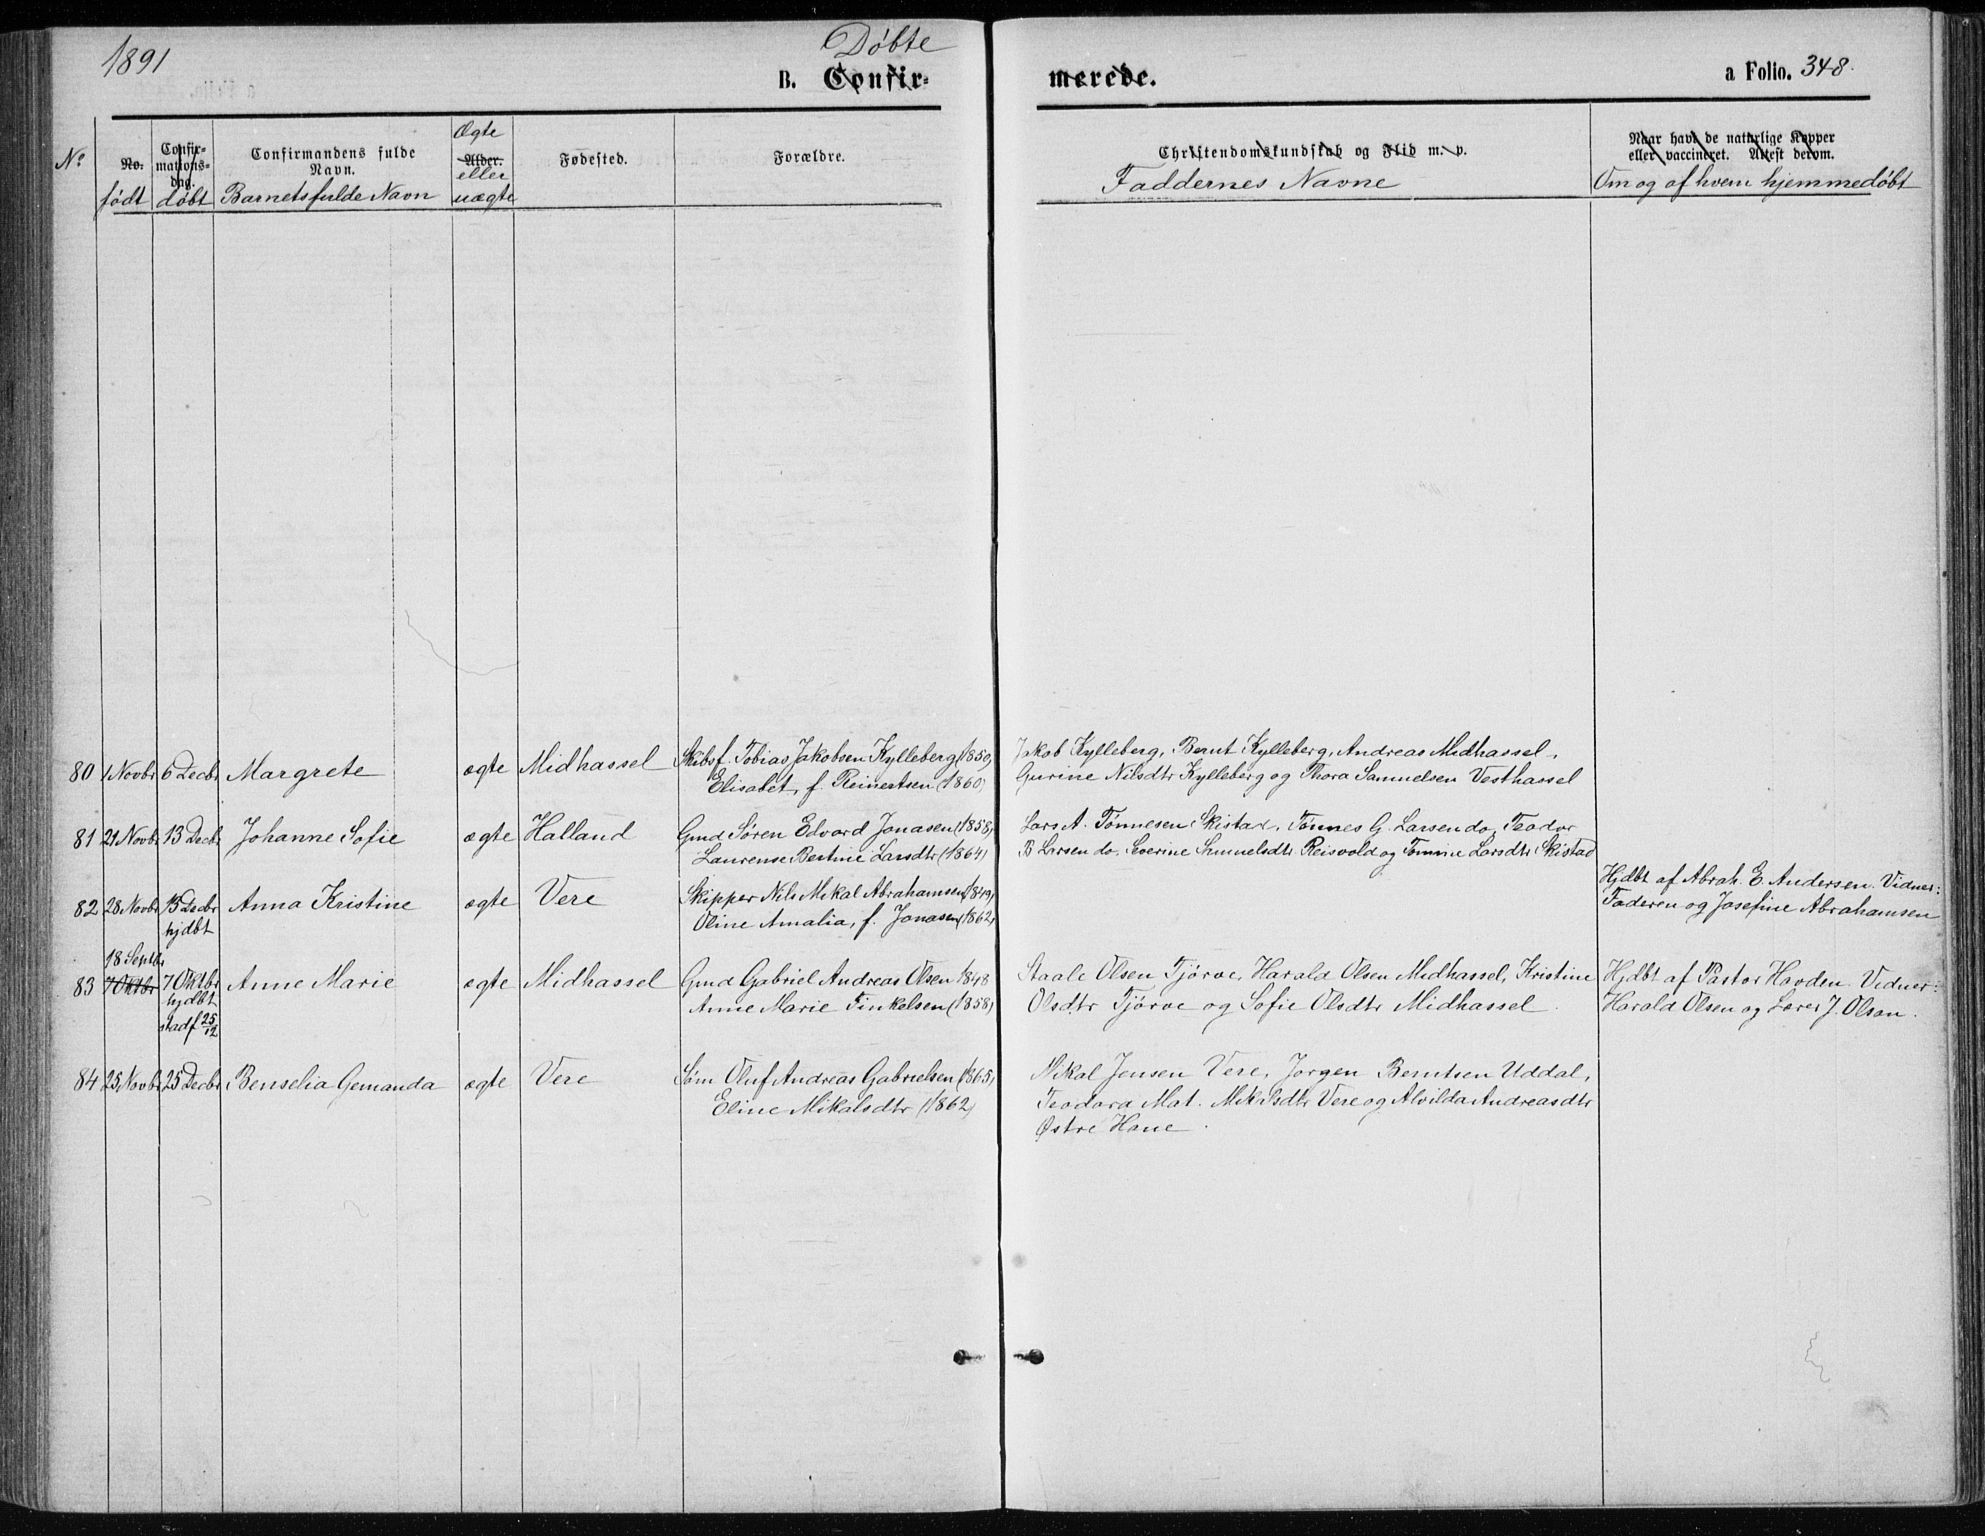 1891
Døbte
B. Confir-
merede.
a Folio. 348.
No
No.
født
Confir-
mations-
dag.
døbt
Confirmandens fulde
Navn.
Barnets fulde Navn
Ægte
Alder.
eller
uægte
Fødested.
Forældre.
Christendomskundskab og Flid m. v.
Faddernes Navne
Naar havt de naturlige Kopper
eller vaccineret. Attest derom.
Om og af hvem hjemmedøbt
80 1 Novbr 6 Decbr Margrete ægte Midhassel
Skibsf. Tobias Jakobsen Kylleberg (1850)
Elisabet, f. Reinertsen (1860)
Jakob Kylleberg, Bernt Kylleberg, Andreas Midhassel,
Gurine Nilsdtr Kylleberg og Thora Samuelsen Vesthassel
81 21 Novbr 13 Decbr Johanne Sofie ægte Halland
Gmd Søren Edvard Jonasen (1858)
Laurense Bertine Larsdtr (1864)
Lars A. Tønnesen Skistad, Tønnes G. Larsen do, Teodor
B Larsen do, Severine Samuelsdtr Reisvold og Tomine Larsdtr Skistad
82 28 Novbr 15 Decbr
hjdbt
Anna Kristine ægte Vere
Skipper Nils Mikal Abrahamsen (1849)
Oline Amalia, f. Jonasen (1862)
Hjdbt af Abrah. E. Andersen. Vidner:
Faderen og Josefine Abrahamsen
18 Septbr
83 7 Oktbr 7 Oktbr
hjdbt
stadf 25/12
Anne Marie ægte Midhassel
Gmd Gabriel Andreas Olsen 1848
Anne Marie Tinkelsen (1858)
Staale Olsen Tjørve, Harald Olsen Midhassel, Kristine
Olsdtr Tjørve og Sofie Olsdtr Midhassel.
Hjdbt af Pastor Havden. Vidner:
Harald Olsen og Lærer J. Olsen.
84 25 Novbr 25 Decbr Benselia Gemanda ægte Vere
Søm Oluf Andreas Gabrielsen (1865)
Eline Mikalsdtr (1862)
Mikal Jensen Vere, Jørgen Berntsen Uddal,
Teodora Mat. Mikalsdtr Vere og Alvilda Andreasdtr
Østre Hane.